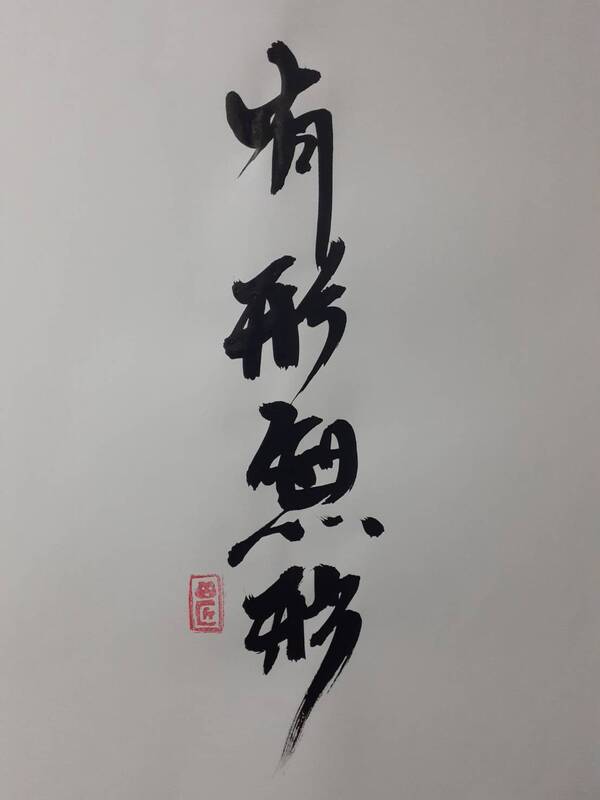 有形無形